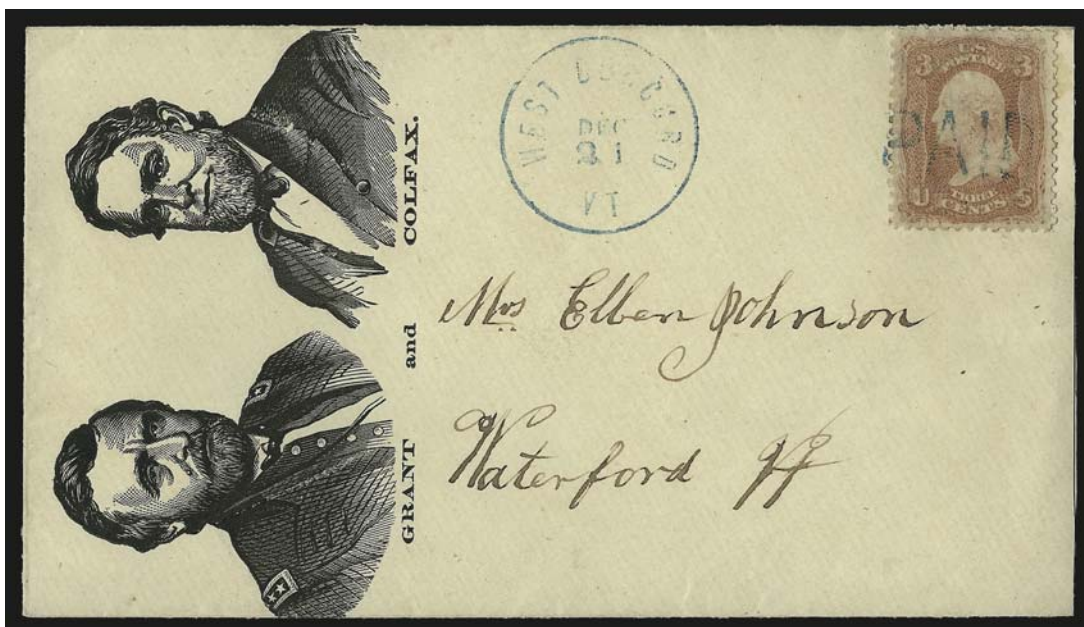 GRANT and COLFAX.
WEST CONCORD
DEC
21
VT
3 3
U.S.
POSTAGE
THREE
CENTS
U S
PAID
Mrs Ellen Johnson
Waterford Vt